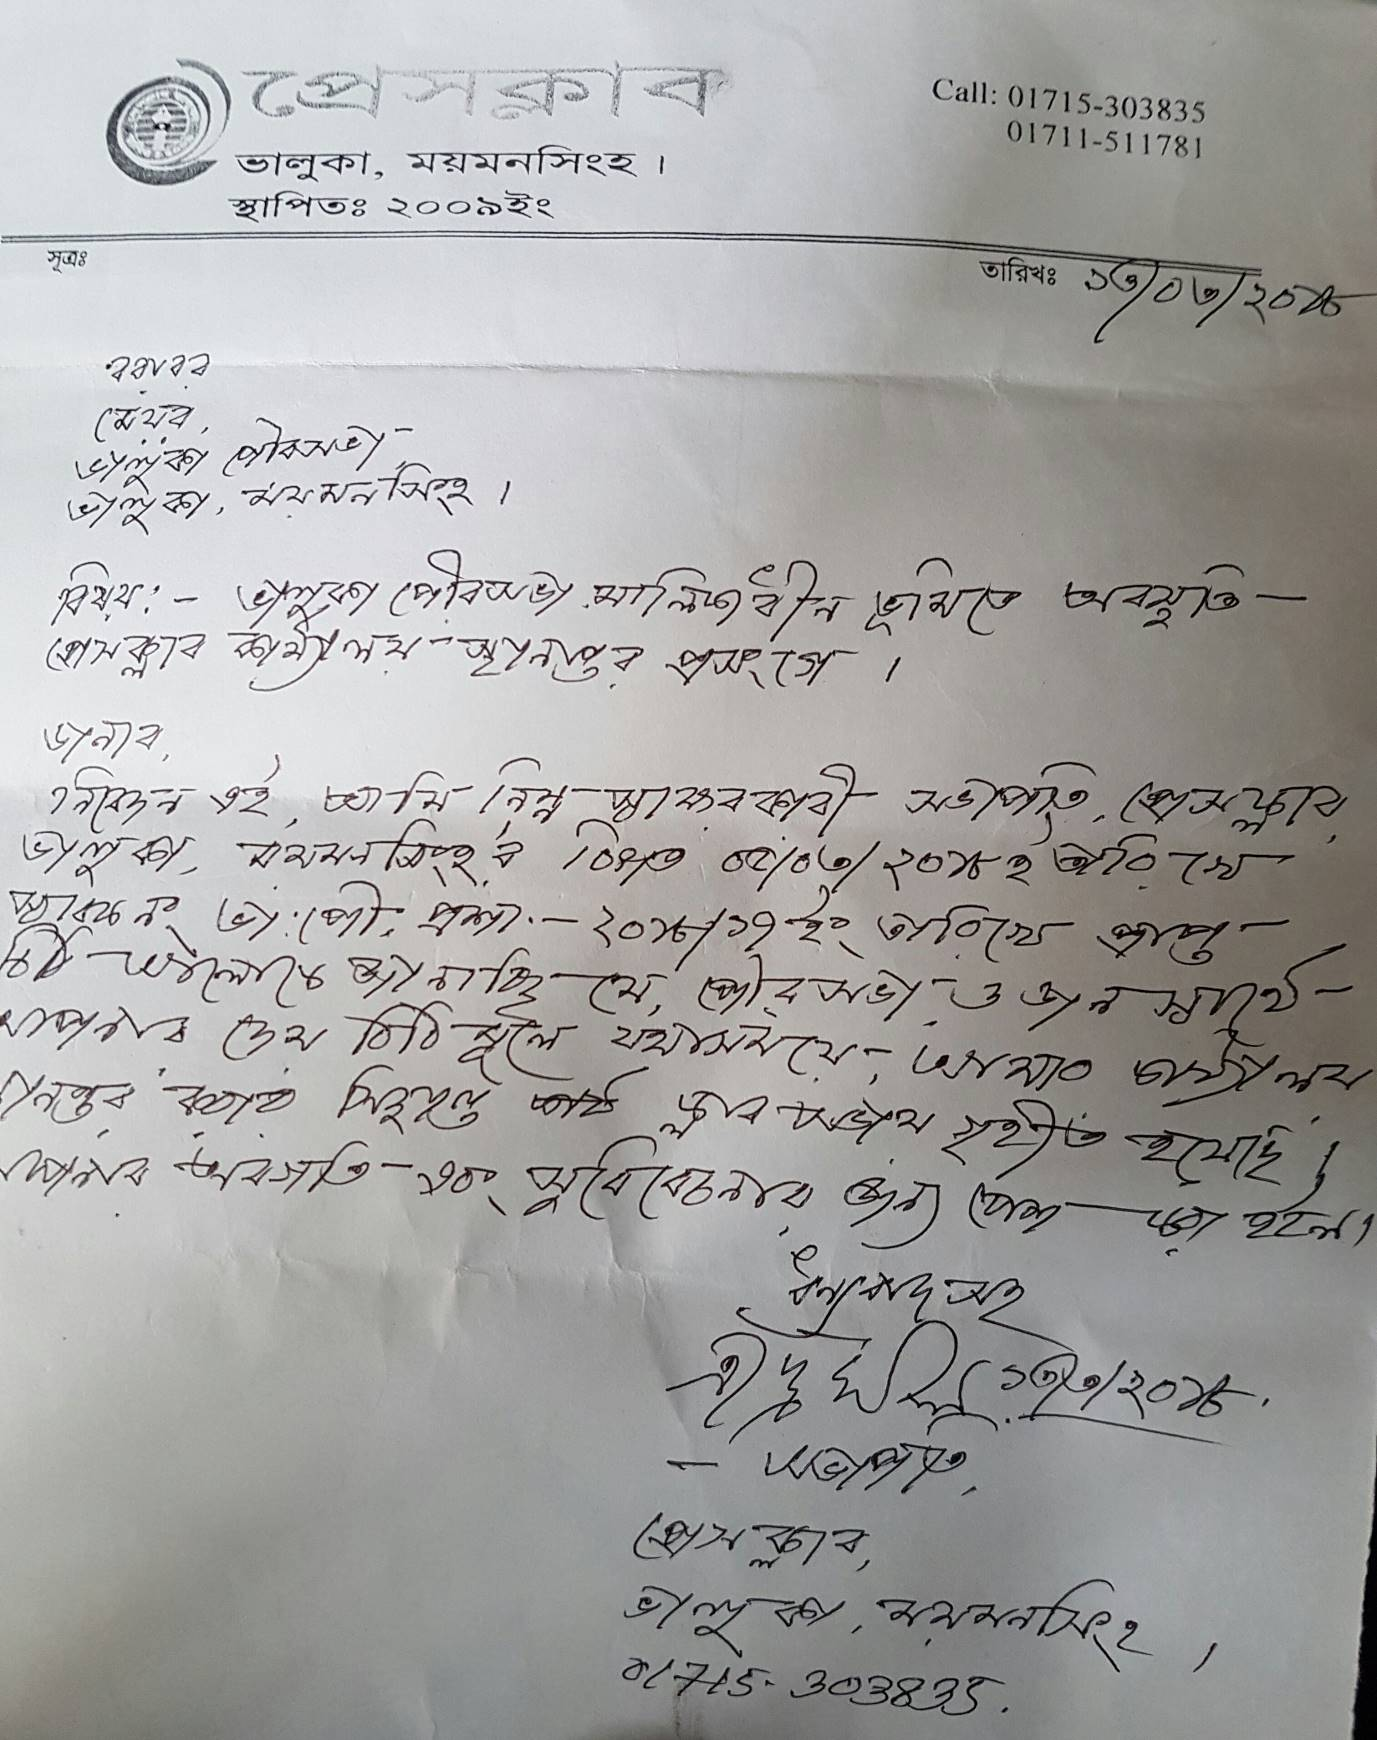 প্রেসক্লাব
ভালুকা, ময়মনসিংহ ।
স্থাপিতঃ ২০০৯ইং
Call: 01715-303835
01711-511781
সূত্রঃ
তারিখঃ ১৩/০৩/২০১৮
বরাবর
মেয়র,
ভালুকা পৌরসভা,
ভালুকা, ময়মনসিংহ ।
বিষয়:- ভালুকা পৌরসভা মালিকাধীন ভূমিতে অবস্থিত
প্রেসক্লাব কার্যালয় স্থানান্তর প্রসংগে ।
জনাব,
নিবেদন এই, আমি নিম্ন স্বাক্ষরকারী সভাপতি, প্রেসক্লাব,
ভালুকা, ময়মনসিংহ, বিগত ০৫/০৩/২০১৮ ইং তারিখে
স্মারক নং ভা:পৌ: প্রশা:-২০১৮/১৭ ইং তারিখে প্রাপ্ত
চিঠি আলোকে জানাচ্ছি যে, পৌরসভা ও জনস্বার্থে
আপনার দেয় চিঠি মূলে যথাসময়ে, আমার কার্য্যালয়
স্থানান্তর করার সিদ্ধান্ত ক্লাব সভায় গৃহীত হয়েছে।
আপনার অবগতি এবং সুবিবেচনার জন্য পেশ করা হইল।
ধন্যবাদ সহ
১৩/৩/২০১৮.
- সভাপতি,
প্রেস ক্লাব,
ভালুকা, ময়মনসিংহ ।
01715-303835.